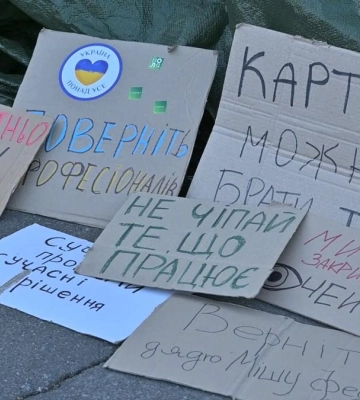 УКРАЇНА
ПОНАД УСЕ
ПОВЕРНІТЬ
ПРОФЕСІОНАЛІВ
КАРТ
МОЖН
БРАТИ
НЕ ЧІПАЙ
ТЕ, ЩО
ПРАЦЮЄ
ЗАКРИ
ОЧЕЙ
СУЧАСНІ
рішення
Верніт
дядю Мішу